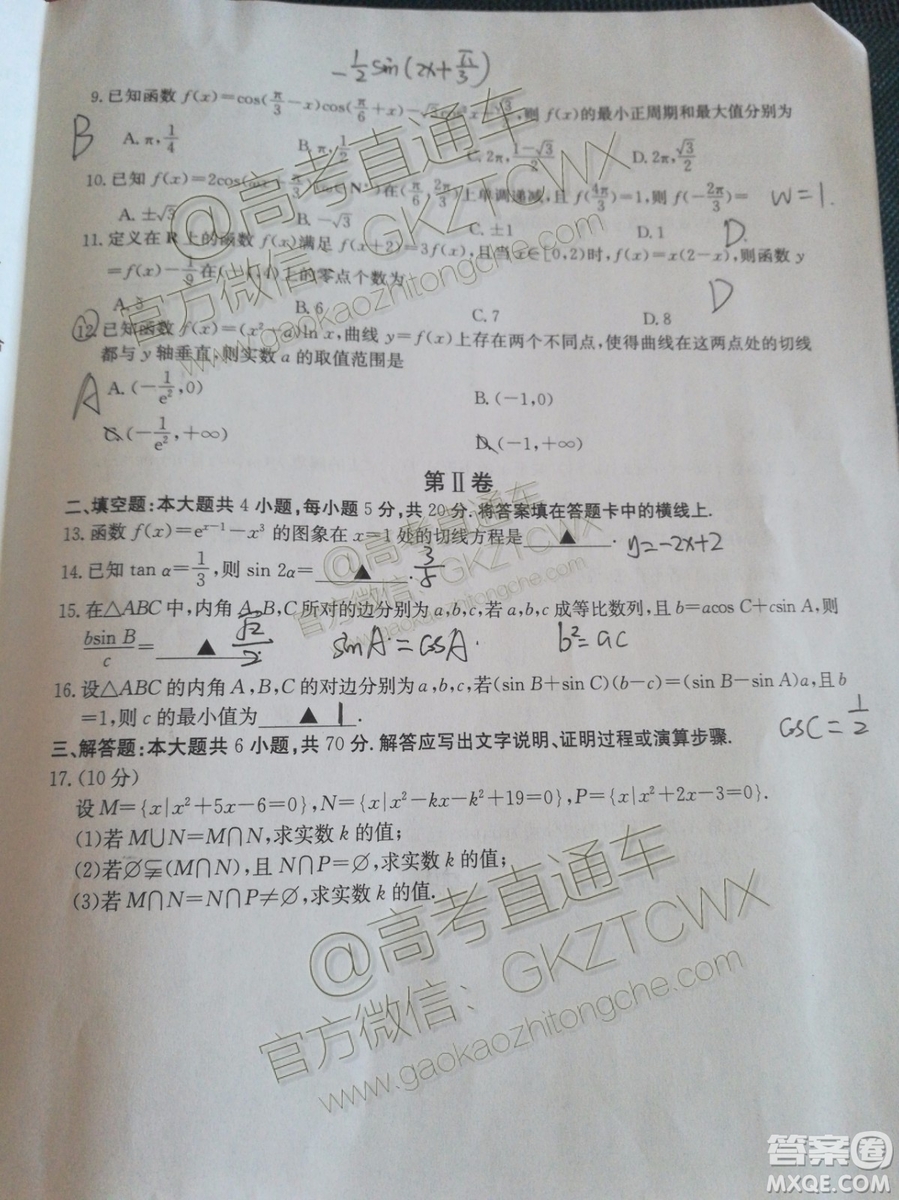 -1/2 sin(2x+π/3)
9.已知函数 f(x)=cos(π/3-x)cos(π/6+x)-,则 f(x)的最小正周期和最大值分别为
B
A.π,1/4 B.π,1/2 C.2π,(1-√3)/2 D.2π,√3/2
10.已知 f(x)=2cos( 在(π/6,2π/3)上单调递减,且 f(4π/3)=1,则 f(-2π/3)= w=1.
A.±√3 B.-√3 C.±1 D.1 D.
11.定义在 R 上的函数 f(x)满足 f(x+2)=3f(x),且当 x∈[0,2)时,f(x)=x(2-x),则函数 y
=f(x)-1/9在 上的零点个数为
A.3 B.6 C.7 D.8 D
12.已知函数 f(x)=(x²-a)ln x,曲线 y=f(x)上存在两个不同点,使得曲线在这两点处的切线
都与 y 轴垂直,则实数 a 的取值范围是
A
A.(-1/e²,0) B.(-1,0)
C.(-1/e²,+∞) D.(-1,+∞)
第Ⅱ卷
二、填空题:本大题共 4 小题,每小题 5 分,共 20 分.将答案填在答题卡中的横线上.
13.函数 f(x)=eˣ⁻¹-x³ 的图象在 x=1 处的切线方程是 ▲ . y=-2x+2
14.已知 tan α=1/3,则 sin 2α= ▲ . 3/5
15.在△ABC 中,内角 A,B,C 所对的边分别为 a,b,c,若 a,b,c 成等比数列,且 b=acos C+csin A,则
bsin B/c= ▲ . √2/2 sinA=cosA. b²=ac
16.设△ABC 的内角 A,B,C 的对边分别为 a,b,c,若(sin B+sin C)(b-c)=(sin B-sin A)a,且 b
=1,则 c 的最小值为 ▲ 1 . cosC=1/2
三、解答题:本大题共 6 小题,共 70 分.解答应写出文字说明、证明过程或演算步骤.
17.(10 分)
设 M={x|x²+5x-6=0},N={x|x²-kx-k²+19=0},P={x|x²+2x-3=0}.
(1)若 M∪N=M∩N,求实数 k 的值;
(2)若∅⫋(M∩N),且 N∩P=∅,求实数 k 的值;
(3)若 M∩N=N∩P≠∅,求实数 k 的值.
@高考直通车
官方微信:GKZTCWX
www.gaokaozhitongche.com
@高考直通车
官方微信:GKZTCWX
www.gaokaozhitongche.com
@高考直通车
官方微信:GKZTCWX
www.gaokaozhitongche.com
答案圈
MXQE.COM